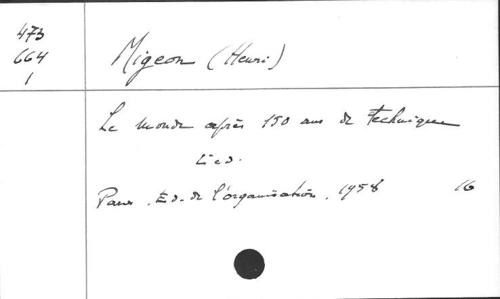 473
664
1
Migeon (Henri)
Le monde après 150 ans de technique
Paris. Ed. de l'organisation. 1958 16